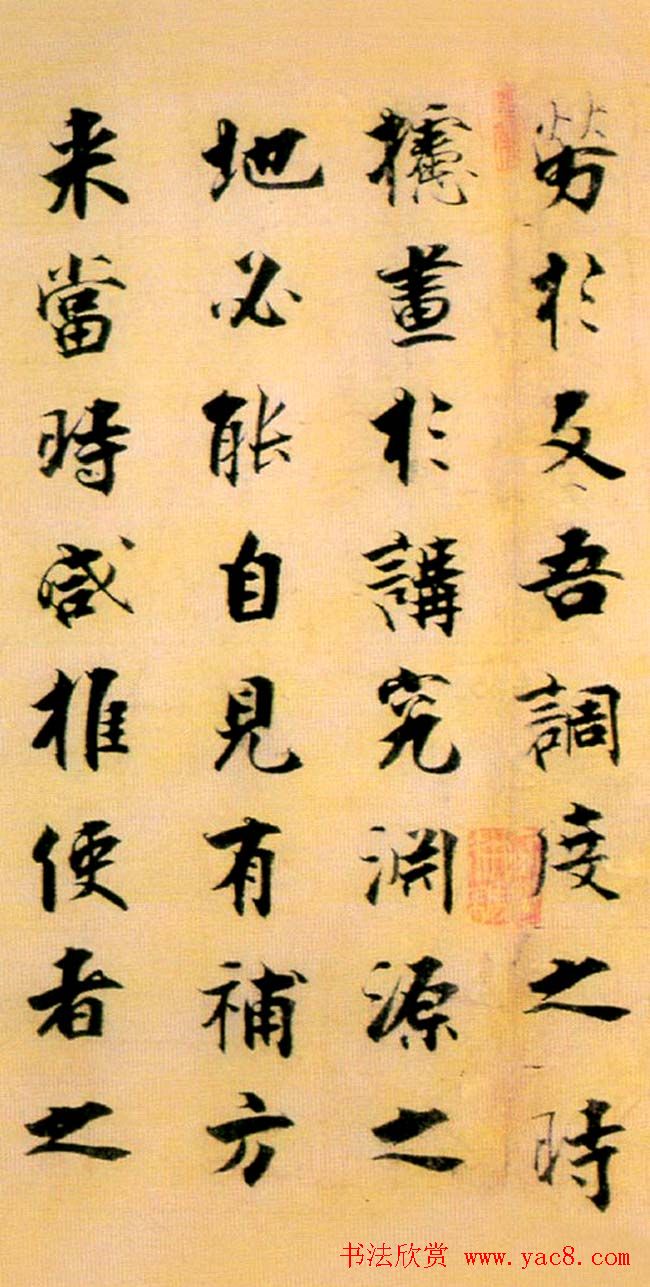 勞於反吾調度之時
攄畫於講究淵源之
地必能自見有補方
来當時咸推使者之
书法欣赏 www.yac8.com